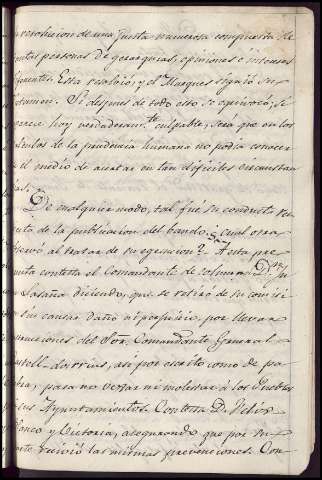 resolucion de una Junta numerosa compuesta de
tantas personas de gerarquias, opiniones é intereses
diferentes. Esta resolvió, y el Marques siguió su
dictamen. Si despues de todo esto se equivocó; si
parece hoy verdaderam.te culpable, será que en los
de la prudencia humana no podia conocer
el medio de acertar en tan dificiles circunstan
cias.
De cualquier modo, tal fué su conducta res
pecto de la publicacion del bando: ¿y cual otra
observó al tratar de su egecucion? A esta pre
gunta contesta el Comandante de columna D.n
Lasaña diciendo, que se retiró de su comisi
on sin causar daño ni perjuicio, por llevar
prevenciones del Sor. Comandante General
asi por escrito como de pa
labra, para no vejar ni molestar á los Pueblos
ni sus Ayuntamientos. Contesta D. Felix
Blanco y Victoria, asegurando que por su
parte recivió las mismas prevenciones. Con